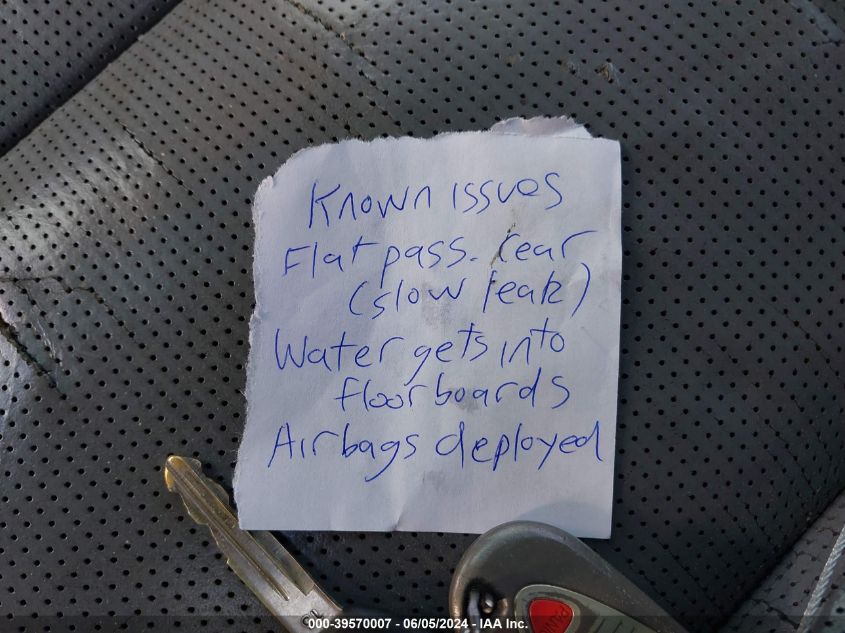 Known issues
Flat pass. rear
(slow leak)
Water gets into
floorboards
Airbags deployed
000-39570007 - 06/05/2024 - IAA Inc.